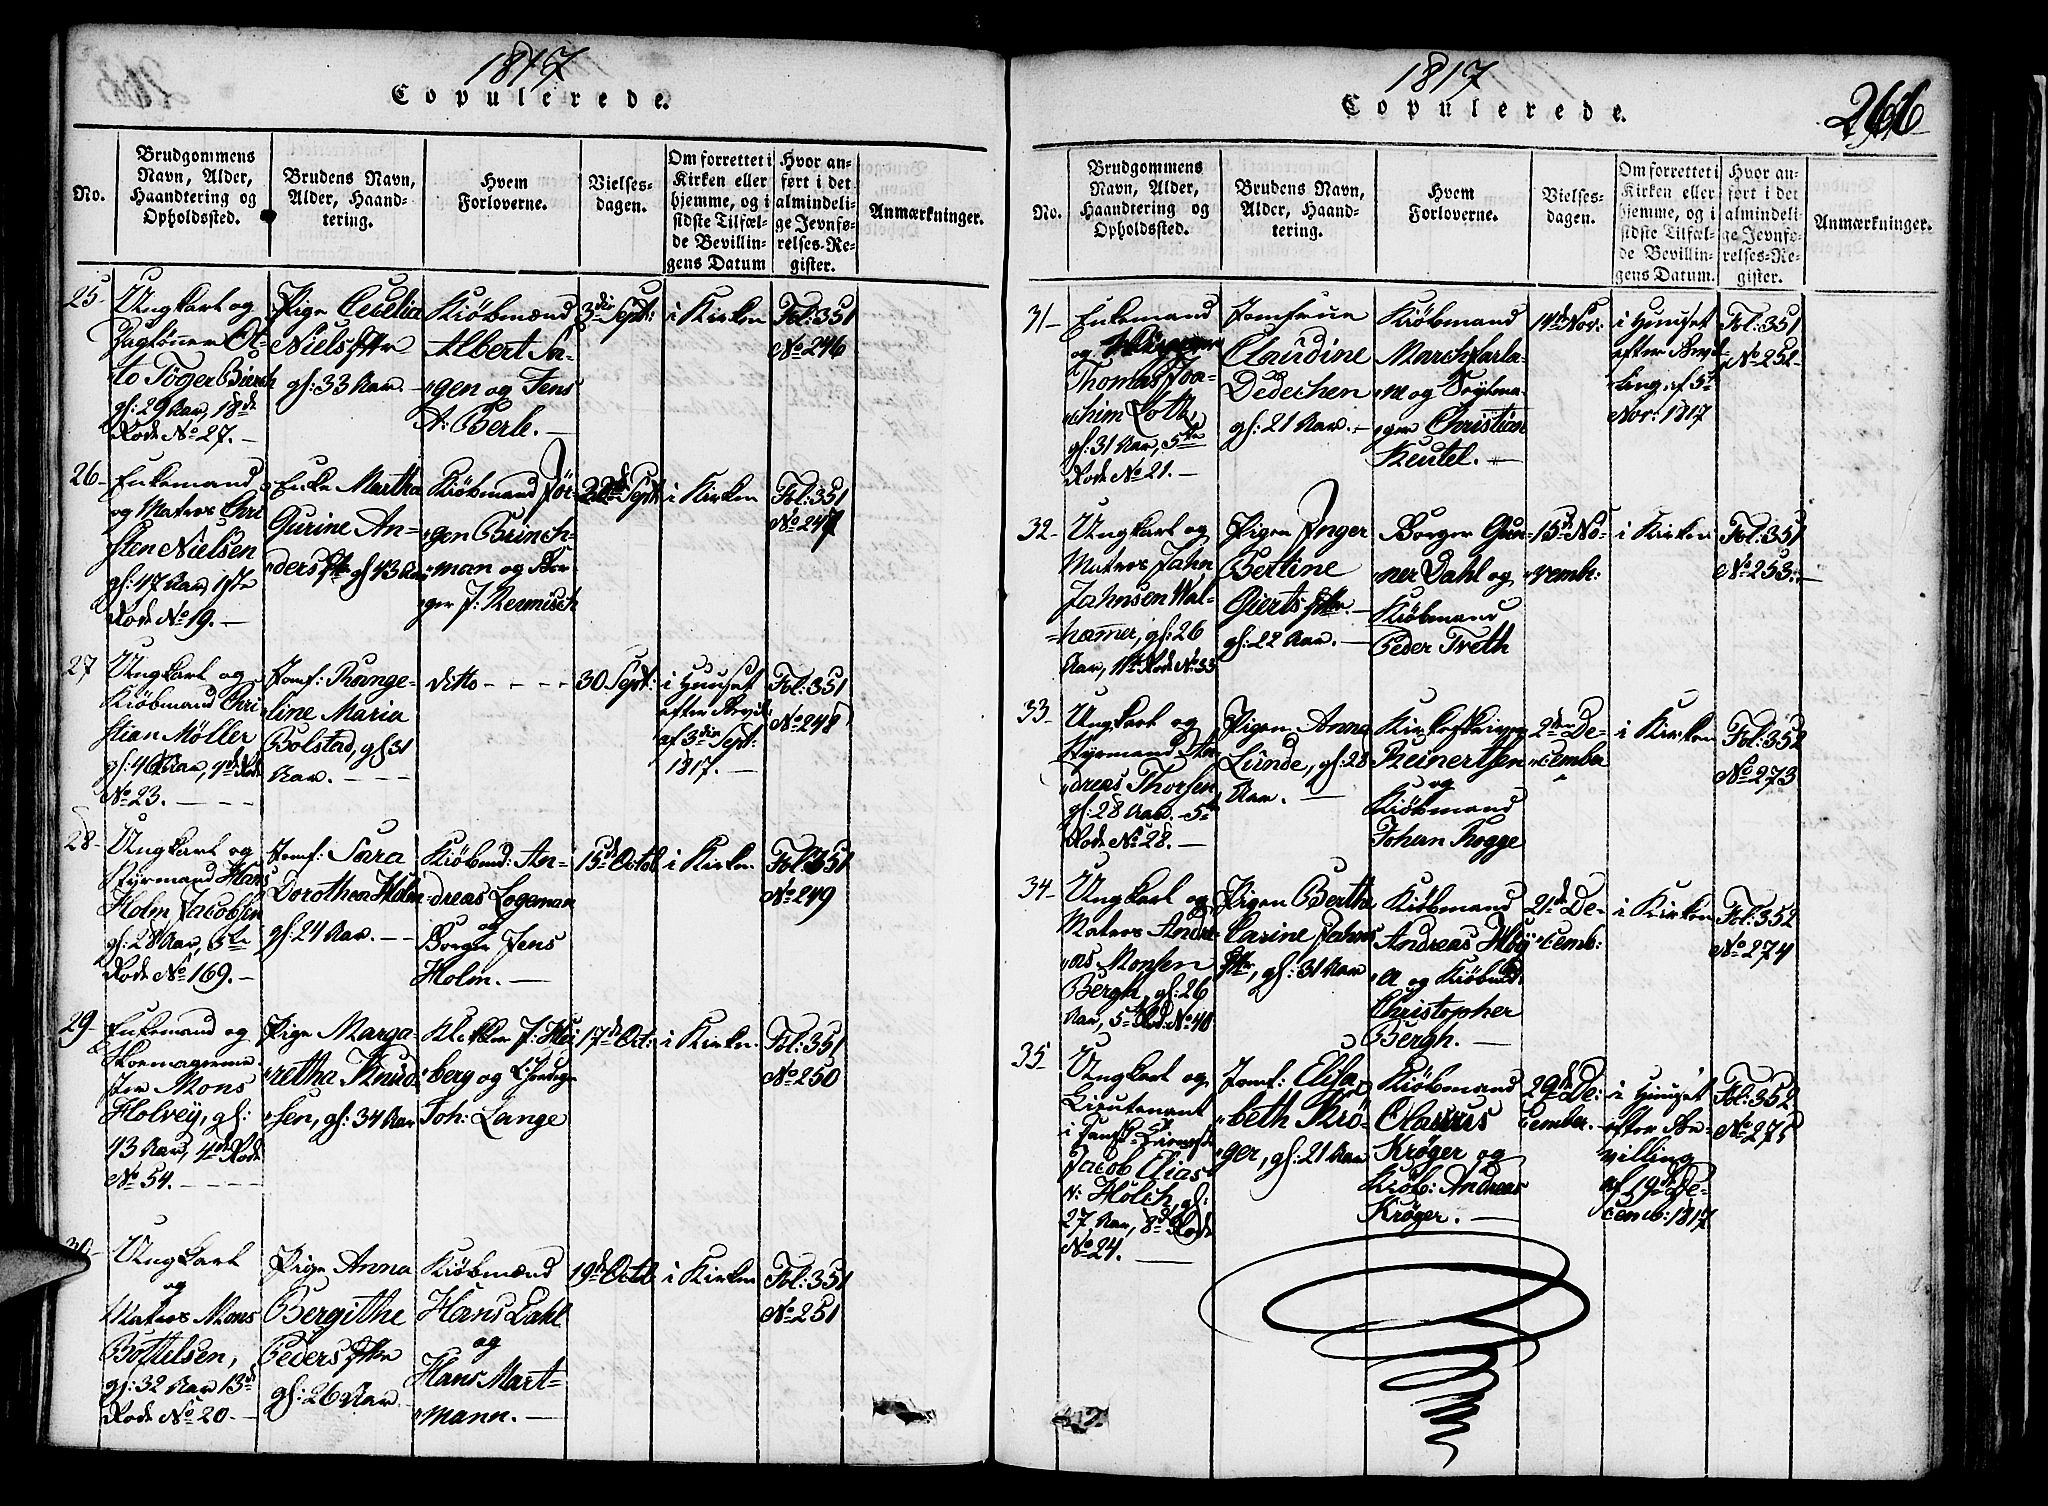 1817
Copulerede.
No.
Brudgommens
Navn, Alder,
Haandtering og
Opholdssted.
Brudens Navn,
Alder, Haand-
tering.
Hvem
Forloverne.
Vielses-
dagen.
Om forrettet i
Kirken eller
hjemme, og i
sidste Tilfæl-
de Bevillin-
gens Datum
Hvor an-
ført i det
almindeli-
ge Jevnfø-
relses-Re-
gister.
Anmærkninger.
25-
Ungkarl og
Daglønner Ot-
to Tøger Biørch
gl: 29 Aar, 18de
Rode No 27. -
Pige Cecelia
Nielsdttr
gl: 33 Aar. -
Kiøbmænd
Albert Sa-
gen og Jens
A: Berle. -
3die Sept:
i Kirken
Fol: 351
No 246
26-
Enkemand
og Matros Chri
sten Nielsen
gl: 47 Aar, 19de
Rode No 19. -
Enke Martha
Gurine An-
ders dttr gl 43 Aar
Kiøbmand Jør-
gen Brinch-
man og Bor-
ger J: Reunisch
22de Sept
i Kirken
Fol: 351
No 247
27
Ungkarl og
Kiøbmand Chri
stian Møller
gl: 46 Aar, 4de Rode
No 23. - - -
Jomf: Range-
line Maria
Bolstad, gl: 31
Aar. - - -
ditto - - - -
30 Sept:
i Huuset
efter Bevill:
af 3die Sept:
1817. -
Fol: 351
No 248
28-
Ungkarl og
Styrmand Hans
Holm Jacobsen
gl: 28 Aar, 5te
Rode No 169. -
Jomf: Sara
Dorothea Holm
gl: 24 Aar. - -
Kiøbmd: An-
dreas Logeman
og
Borger Jens
Holm. -
15de Octob
i Kirken
Fol: 351
No 249
29-
Enkemand og
Skomagerme-
ster Mons
Holvey, gl:
43 Aar, 4de Rode
No 54. - - - -
Pige Marga-
retha Knud-
sen, gl: 34 Aar
berg og
Joh: Lange
17de Oct:
i Kirken
Fol: 351
No 250
30-
Ungkarl
og
Matros Mons
Bottelsen,
gl: 32 Aar 13de
Rode No 20. -
Pige Anna
Bergithe
Peders dttr
gl: 26 Aar.
Kiøbmænd
Hans Dahl
og
Hans Mart-
mann. -
19de Octob
i Kirken
Fol: 351
No 251
1817
Copulerede.
266
No.
Brudgommens
Navn, Alder,
Haandtering og
Opholdssted.
Brudens Navn,
Alder, Haand-
tering.
Hvem
Forloverne.
Vielses-
dagen.
Om forrettet i
Kirken eller
hjemme, og i
sidste Tilfæl-
de Bevillin-
gens Datum.
Hvor an-
ført i det
almindeli-
ge Jevnfø-
relses-Re-
gister.
Anmærkninger.
31-
Enkemand
og
Thomas Joa-
chim Loth,
gl: 31 Aar, 5te
Rode No 21. -
Jomfrue
Claudine
Dedechen
gl: 21 Aar. -
Kiøbmand
March Carla-
og
ger Christian
Keutel. -
14de Nov:
i Huuset
efter Bevil-
ling af 5te
Nov: 1817
Fol: 351
No 252-
32-
Ungkarl og
Matros Jahn
Jahnsen Wal-
hammer, gl: 26
Aar, 11te Rode No 33
Pigen Inger
Bertine
Giertsdttr. -
gl: 22 Aar. -
Borger Gun-
ner Dahl og
Kiøbmand
Peder Treth
15de No-
vemb:
i Kirken
Fol: 351
No 253. -
33-
Ungkarl og
Styrmand An-
dreas Thorsen
gl: 28 Aar. - 5te
Rode No 28. -
Pigen Anna
Lunde, gl: 28
Aar. -
Reinertsen
og
Kiøbmand
Johan Rogge
2den De-
cember
i Kirken
Fol: 352
No 273
34-
Ungkarl og
Matros Andre-
as Monsen
Bergh, gl: 26
Aar, 5te Rode No 40
Pigen Bertha
Carine Jahns
dttr, gl: 31 Aar
Kiøbmand
Andreas Høy
og Kiøbmd:
Christopher
Bergh. -
21de De-
cemb:
i Kirken
Fol: 352
No 274
35-
Ungkarl og
Lieutenant
Jacob Elias
N: Holch, gl:
27 Aar, 8de Rode
No 24. -
Jomf: Elisa
beth Krø-
ger, gl: 21 Aar
Kiøbmand
Claus
Krøger og
Kiøb: Andreas
Krøger. -
29de De-
cember.
i Huuset
efter Be-
villing
af 19de De-
cemb: 1817
Fol: 352
No 275